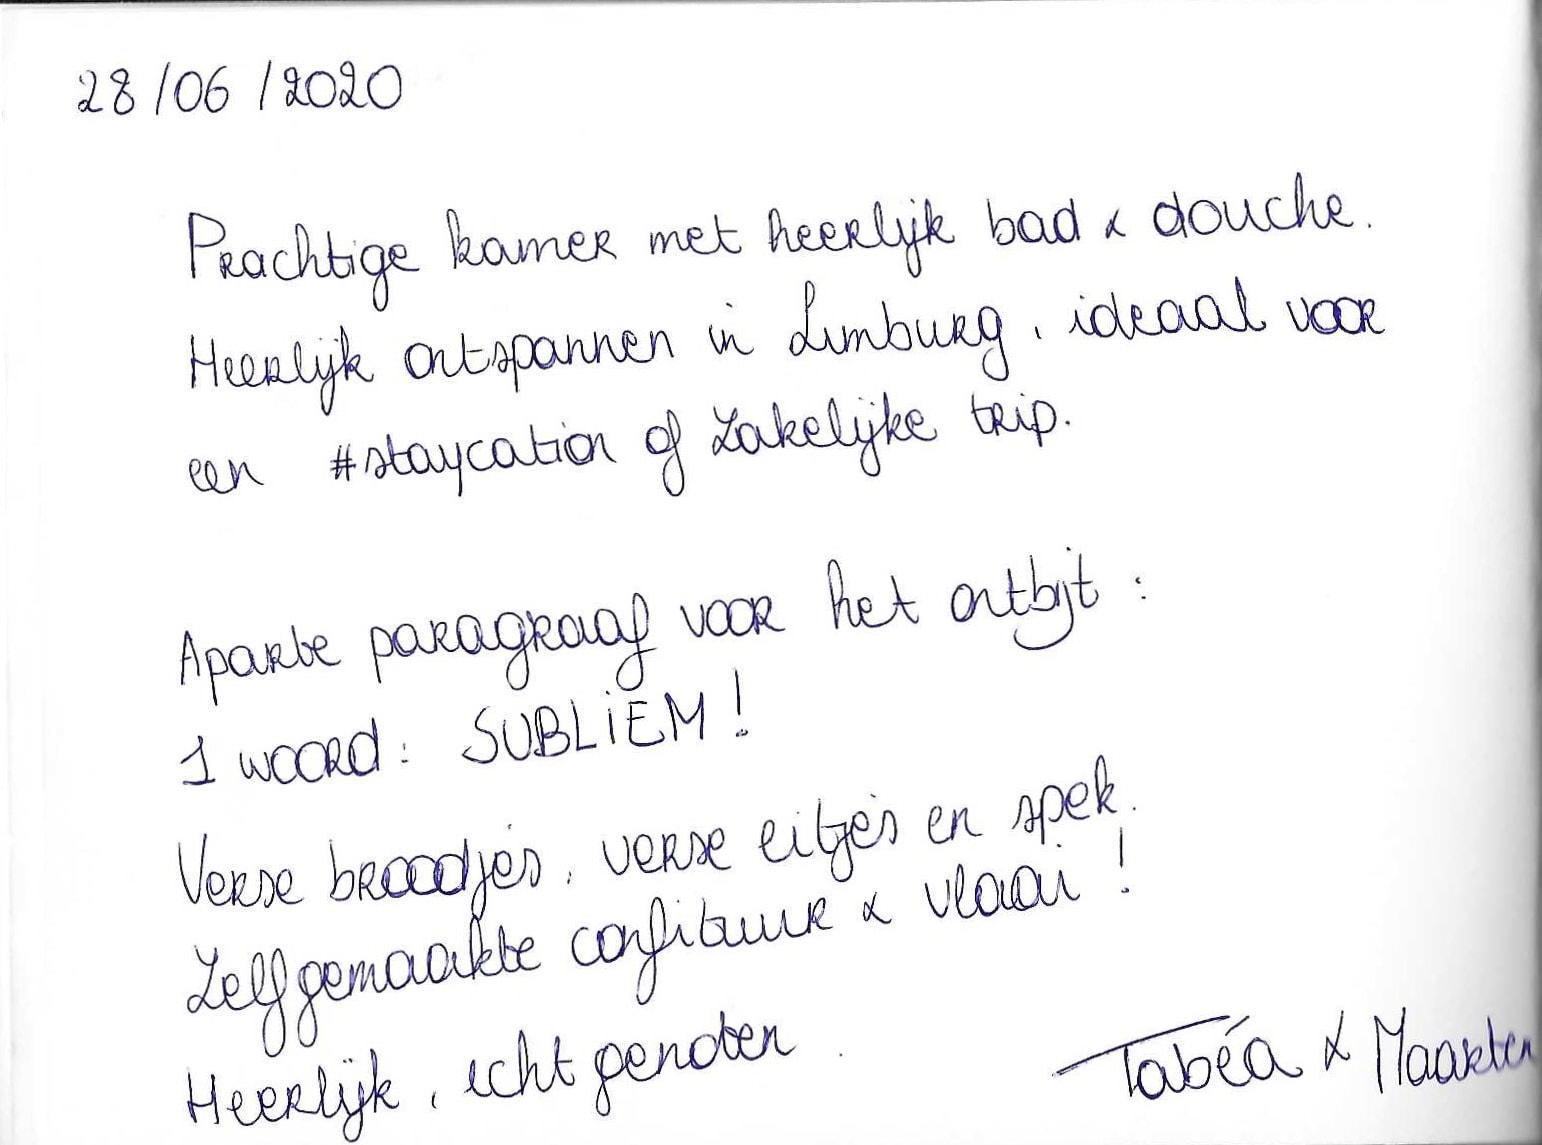 28/06/2020
Prachtige kamer met heerlijk bad & douche.
Heerlijk ontspannen in Limburg, ideaal voor
een #staycation of zakelijke trip.
Aparte paragraaf voor het ontbijt :
1 woord : SUBLIEM !
Verse broodjes, verse eitjes en spek.
Zelfgemaakte confituur & vlaai !
Heerlijk, echt genoten.
Tabéa & Maarten